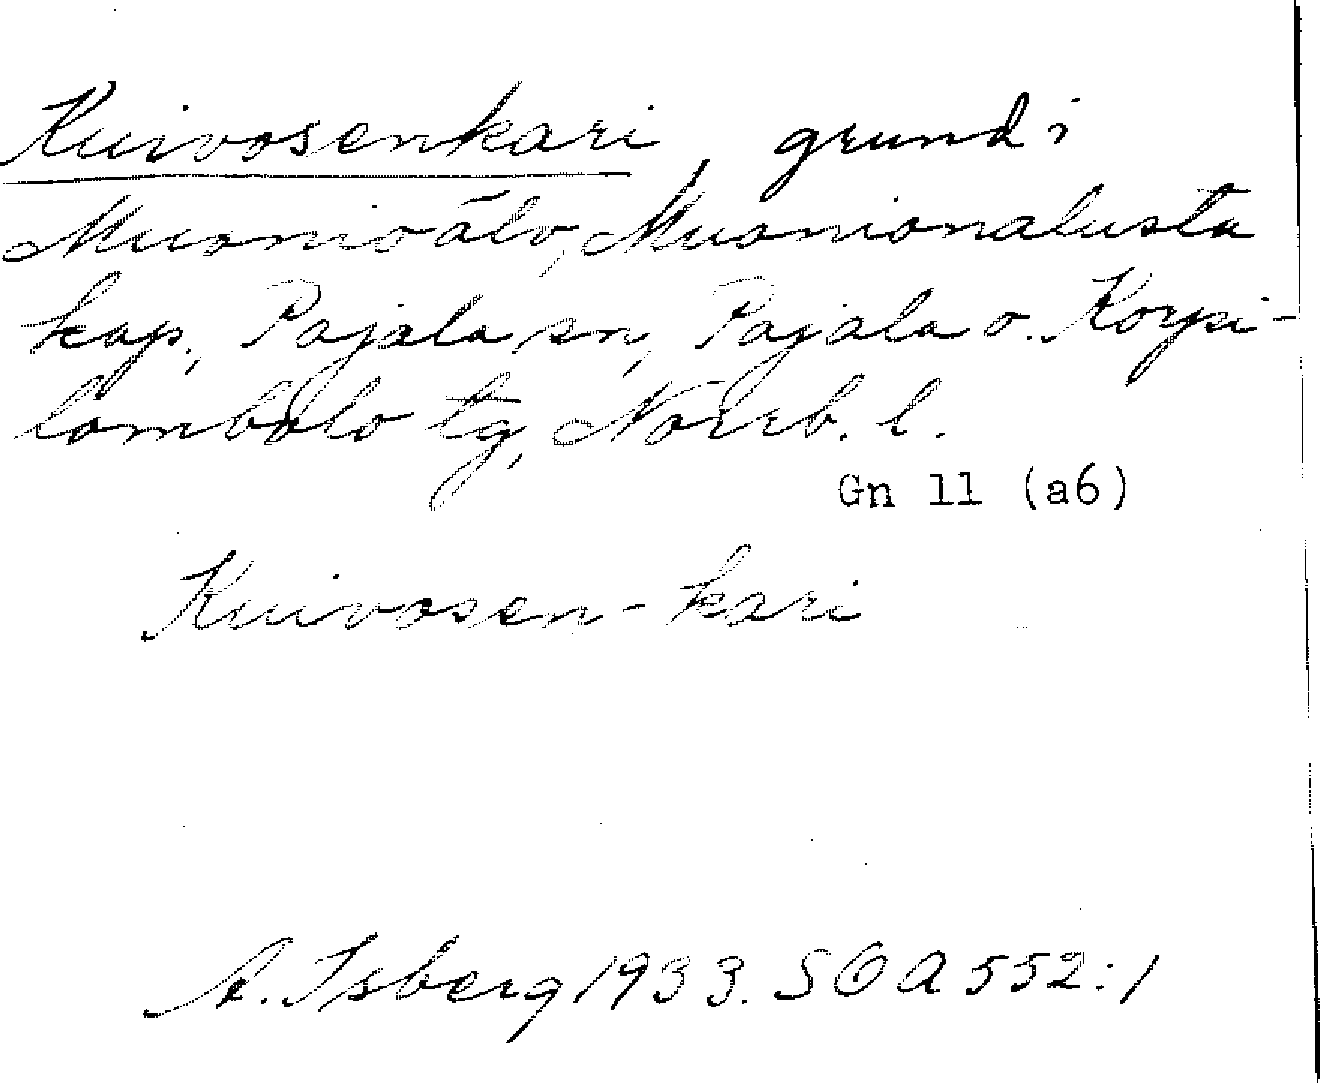 Kuivosenkari, grund i
Muonioälv, Muonionalusta
kap., Pajala sn, Pajala o. Korpi-
lombolo tg, Norrb. l.
Gn 11 (a6)
Kuivosen-kari
A. Isberg 1933. SOA 552:1